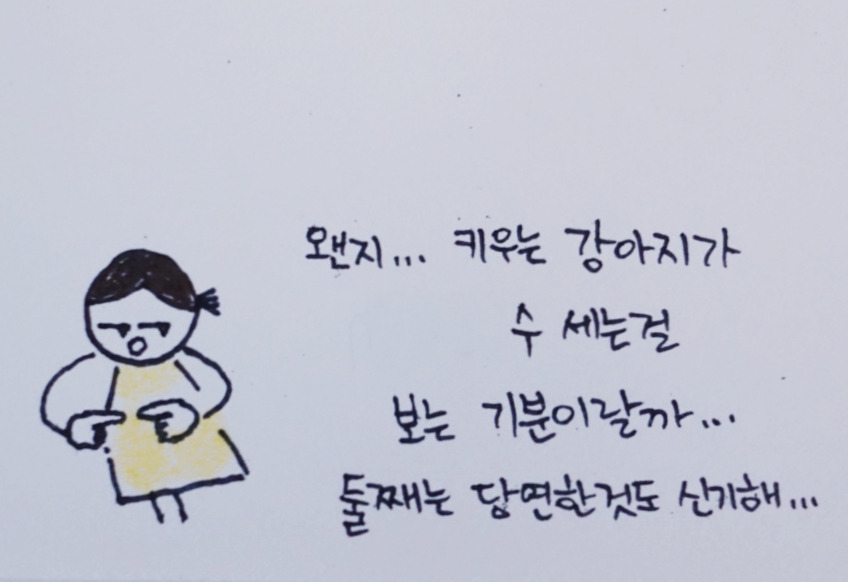 왠지... 키우는 강아지가
수 세는걸
보는 기분이랄까...
둘째는 당연한것도 신기해...